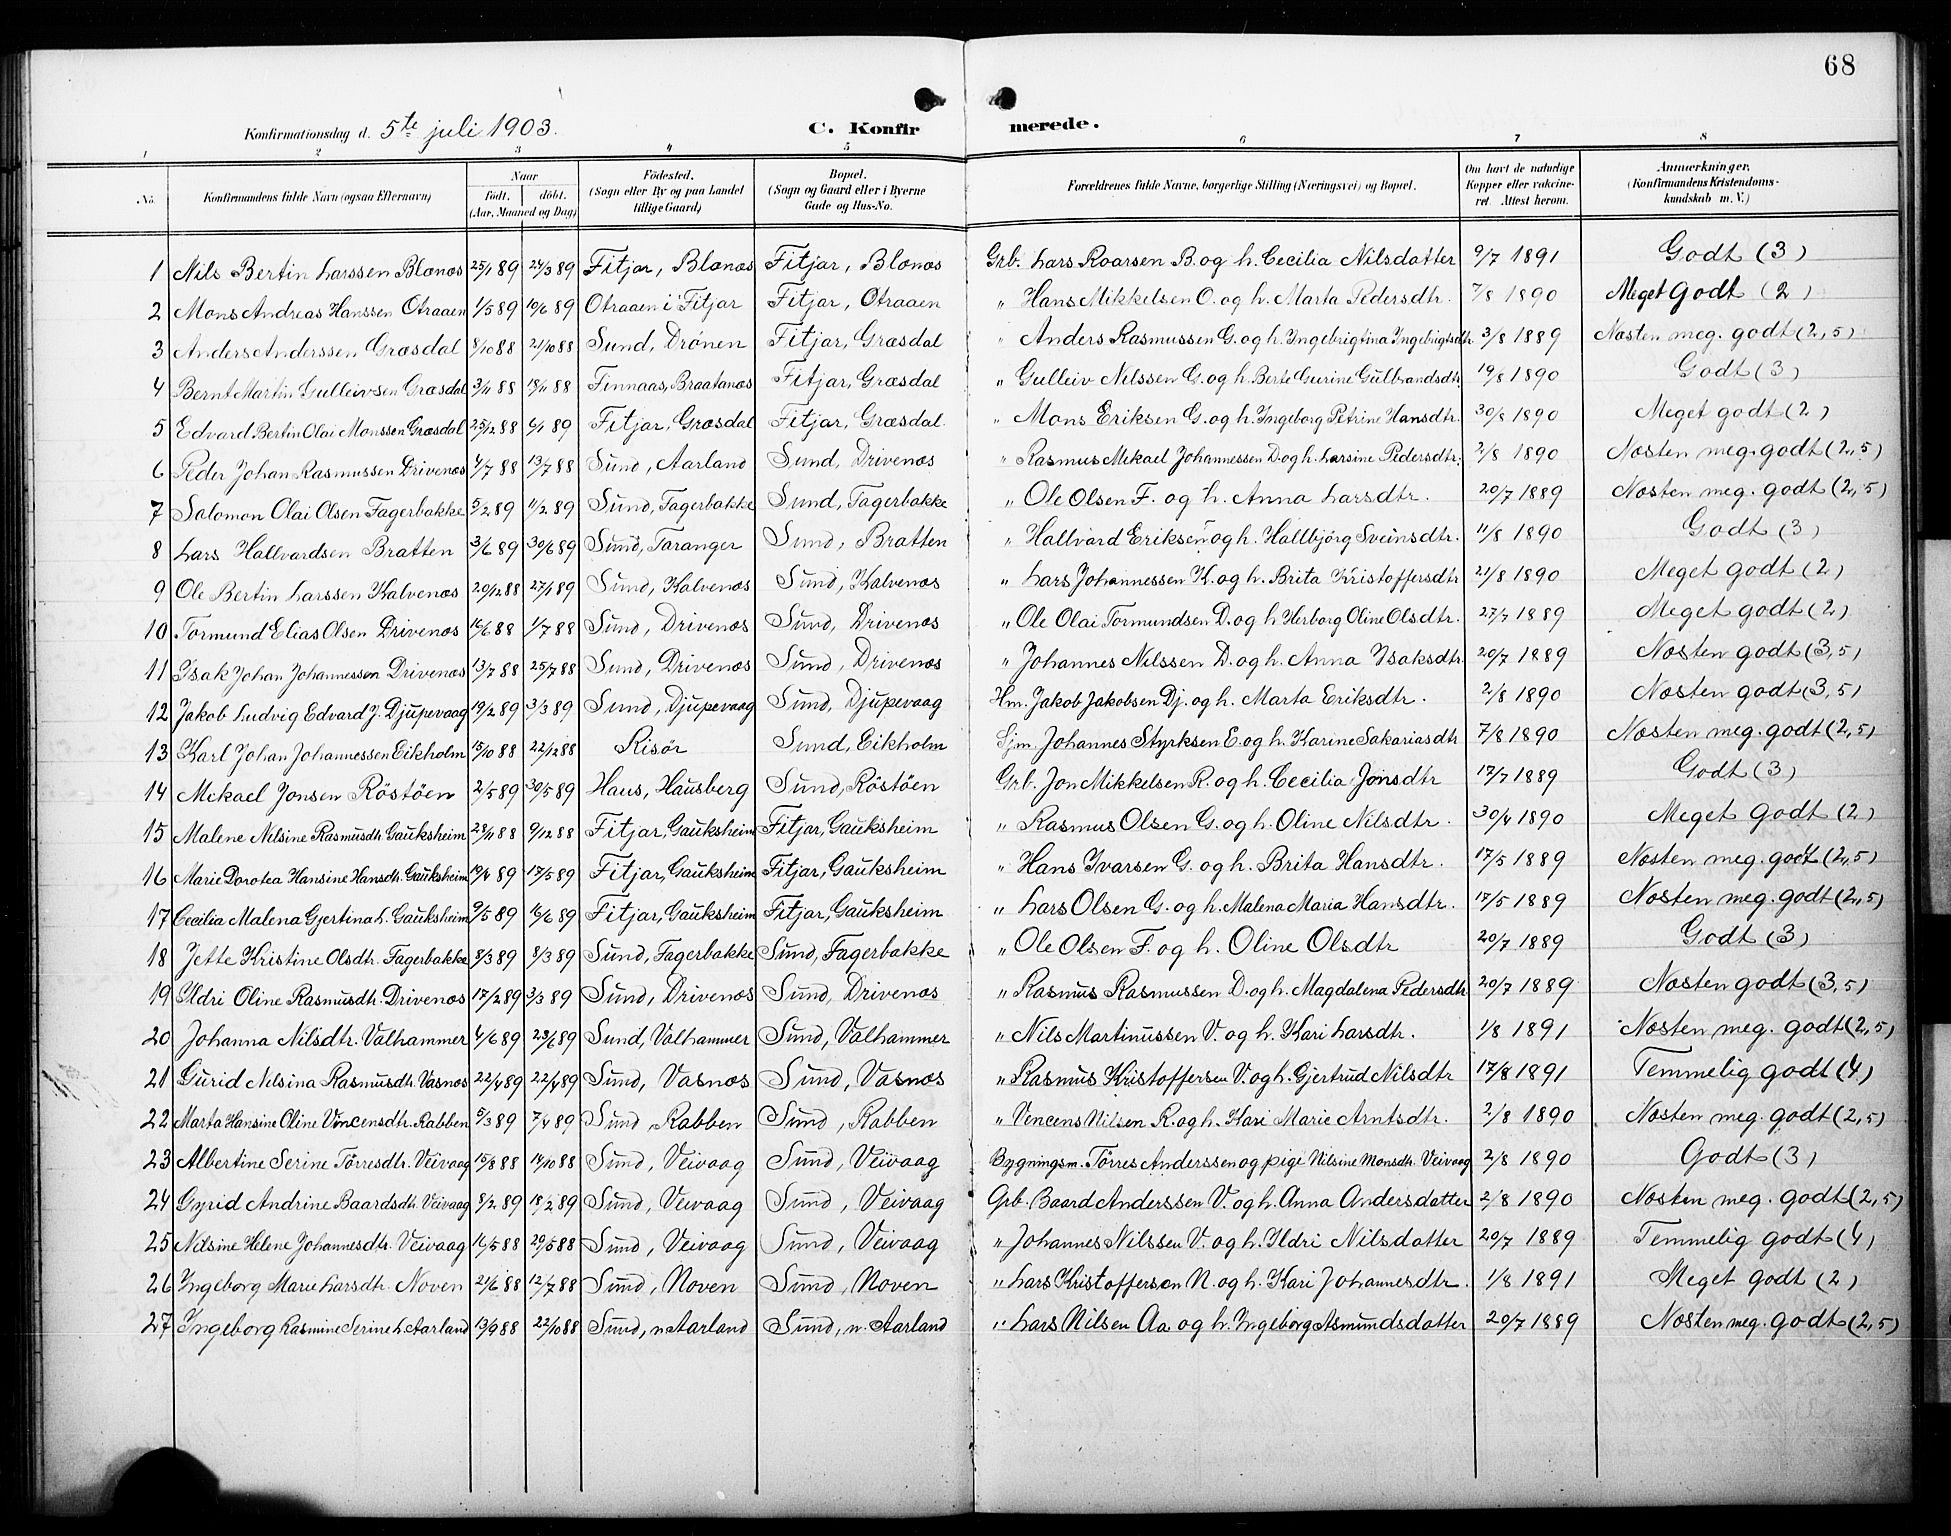 68
Konfirmationsdag d. 5te juli 1903.
C. Konfirmerede.
1 2 3 4 5 6 7 8
No. | Konfirmandens fulde Navn (ogsaa Efternavn) | Naar födt. döbt. (Aar, Maaned og Dag) | Födested. (Sogn eller By og paa Landet tillige Gaard) | Bopæl. (Sogn og Gaard eller i Byerne Gade og Hus-No. | Forældrenes fulde Navne, borgerlige Stilling (Næringsvei) og Bopæl. | Om havt de naturlige Kopper eller vakcineret. Attest herom. | Anmærkninger, (Konfirmandens Kristendomskundskab m. V.)
1 Nils Bertin Larssen Blænæs 25/1 89 24/3 89 Fitjar, Blænæs Fitjar, Blænæs Grb. Lars Roarsen B. og h. Cecilia Nilsdatter 9/7 1891 Godt (3)
2 Mons Andreas Hanssen Otraaen 1/5 89 10/6 89 Otraaen i Fitjar Fitjar, Otraaen " Hans Mikkelsen O. og h. Marta Pedersdtr. 7/8 1890 Meget godt (2)
3 Anders Anderssen Græsdal 8/10 88 21/10 88 Sund, Drönen Fitjar, Græsdal " Anders Rasmussen G. og h. Ingebrigtina Ingebrigtsdtr 3/8 1889 Næsten meg. godt (2,5)
4 Bernt Martin Gulleivsen Græsdal 3/11 88 18/11 88 Finnaas, Braatanæs Fitjar, Græsdal " Gulleiv Nilssen G. og h. Berte Gurine Gulbrandsdtr 19/8 1890 Godt (3)
5 Edvard Bertin Olai Monssen Græsdal 25/12 88 6/1 89 Fitjar, Græsdal Fitjar, Græsdal. " Mons Eriksen G. og h. Ingeborg Petrine Hansdtr. 30/8 1890 Meget godt (2)
6 Peder Johan Rasmussen Drivenæs 4/7 88 13/7 88 Sund, Aarland Sund, Drivenæs " Rasmus Mikael Johannessen D. og h. Larsine Pedersdtr. 2/8 1890 Næsten meg. godt (2,5)
7 Salomon Olai Olsen Fagerbakke 5/2 89 11/2 89 Sund, Fagerbakke Sund, Fagerbakke " Ole Olsen F. og h. Anna Larsdtr. 20/7 1889 Næsten meg. godt (2,5)
8 Lars Hallvardsen Bratten 3/6 89 30/6 89 Sund, Taranger Sund, Bratten " Hallvard Eriksen T og h. Hallbjörg Sveinsdtr. 11/8 1890 Godt (3)
9 Ole Bertin Larssen Kalvenæs 20/12 88 27/1 89 Sund, Kalvenæs Sund, Kalvenæs " Lars Johannessen K. og h. Brita Kristoffersdtr 21/8 1890 Meget godt (2)
10 Tormund Elias Olsen Drivenæs 16/6 88 1/7 88 Sund, Drivenæs Sund, Drivenæs " Ole Olai Tormundsen D. og h. Herborg Oline Olsdtr. 27/7 1889 Meget godt (2)
11 Isak Johan Johannessen Drivenæs 13/7 88 25/7 88 Sund, Drivenæs Sund, Drivenæs " Johannes Nilssen D. og h. Anna Isaksdtr. 20/7 1889 Næsten godt (3,5)
12 Jakob Ludvig Edvard J. Djupevaag 19/2 89 3/3 89 Sund, Djupevaag Sund, Djupevaag Hm. Jakob Jakobsen Dj. og h. Marta Eriksdtr. 2/8 1890 Næsten godt (3,5)
13 Karl Johan Johannessen Eikholm 15/10 88 22/12 88 Risör Sund, Eikholm Sjm. Johannes Styrksen E. og h. Karine Sakariasdtr 7/8 1890 Næsten meg. godt (2,5)
14 Mikael Jonsen Röstöen 2/5 89 30/5 89 Haus, Hausberg Sund, Röstöen Grb. Jon Mikkelsen R. og h. Cecilia Jonsdtr 17/7 1889 Godt (3)
15 Malene Nilsine Rasmusdtr. Gauksheim 23/11 88 9/12 88 Fitjar, Gauksheim Fitjar, Gauksheim " Rasmus Olsen G. og h. Oline Nilsdtr. 30/4 1890 Meget godt (2)
16 Marie Dorotea Hansine Hansdtr. Gauksheim 19/4 89 17/5 89 Fitjar, Gauksheim Fitjar, Gauksheim " Hans Ivarsen G. og h. Brita Hansdtr. 17/5 1889 Næsten meg. godt (2,5)
17 Cecilia Malena Gjertina L. Gauksheim 9/5 89 16/6 89 Fitjar, Gauksheim Fitjar, Gauksheim " Lars Olsen G. og h. Malena Maria Hansdtr. 17/5 1889 Næsten meg. godt (2,5)
18 Jette Kristine Olsdtr. Fagerbakke 8/3 89 8/3 89 Sund, Fagerbakke Sund, Fagerbakke " Ole Olsen F. og h. Oline Olsdtr 20/7 1889 Godt (3)
19 Ildri Oline Rasmusdtr. Drivenæs 17/2 89 3/3 89 Sund, Drivenæs Sund, Drivenæs " Rasmus Rasmussen D. og h. Magdalena Pedersdtr 20/7 1889 Næsten godt (3,5)
20 Johanna Nilsdtr. Valhammer 4/6 89 23/6 89 Sund, Valhammer Sund, Valhammer " Nils Martinussen V. og h. Kari Larsdtr. 1/8 1891 Næsten meg. godt (2,5)
21 Gurid Nilsina Rasmusdtr. Vasnæs 22/4 89 22/4 89 Sund, Vasnæs Sund, Vasnæs " Rasmus Kristoffersen V. og h. Gjertrud Nilsdtr 17/8 1891 Temmelig godt (4)
22 Marta Hansine Oline Vincensdtr. Rabben 5/3 89 7/4 89 Sund, Rabben Sund, Rabben " Vencens Nilsen R. og h. Kari Marie Arntsdtr. 2/8 1890 Næsten meg. godt (2,5)
23 Albertine Serine Törresdtr. Veivaag 15/8 88 14/10 88 Sund, Veivaag Sund, Veivaag Bygningsm. Törres Anderssen og pige Nilsine Monsdtr. Veivaag 2/8 1890 Godt (3)
24 Gyrid Andrine Baardsdtr. Veivaag 8/2 89 18/2 89 Sund, Veivaag Sund, Veivaag Grb. Baard Anderssen V. og h. Anna Andersdatter 2/8 1890 Næsten meg. godt (2,5)
25 Nilsine Helene Johannesdtr. Veivaag 16/5 88 29/5 88 Sund, Veivaag Sund, Veivaag " Johannes Nilssen V. og h. Ildri Nilsdatter 20/7 1889 Temmelig godt (4)
26 Ingeborg Marie Larsdtr. Noven 21/6 88 12/7 88 Sund, Noven Sund, Noven " Lars Kristoffersen N. og h. Kari Johannesdtr. 1/8 1891 Meget godt (2)
27 Ingeborg Rasmine Serine L. Aarland 13/9 88 22/10 88 Sund, n. Aarland Sund, n. Aarland " Lars Nilsen Aa og h. Ingeborg Asmundsdatter 20/7 1889 Næsten meg. godt (2,5)